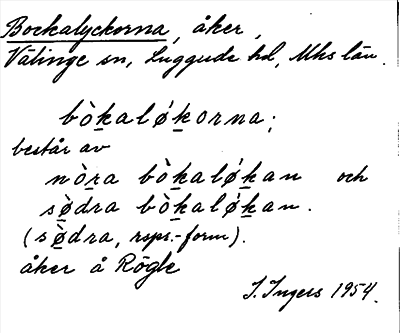 Bockalyckorna, åker,
Välinge sn, Luggude hd, Mhs län.
bò̱kalǿḵorna;
består av
nòra bòḵalǿḵan och
sø̱̀dra bòḵalǿḵan.
(sø̱̀dra, rsps.-form).
åker å Rögle
I. Ingers 1954.